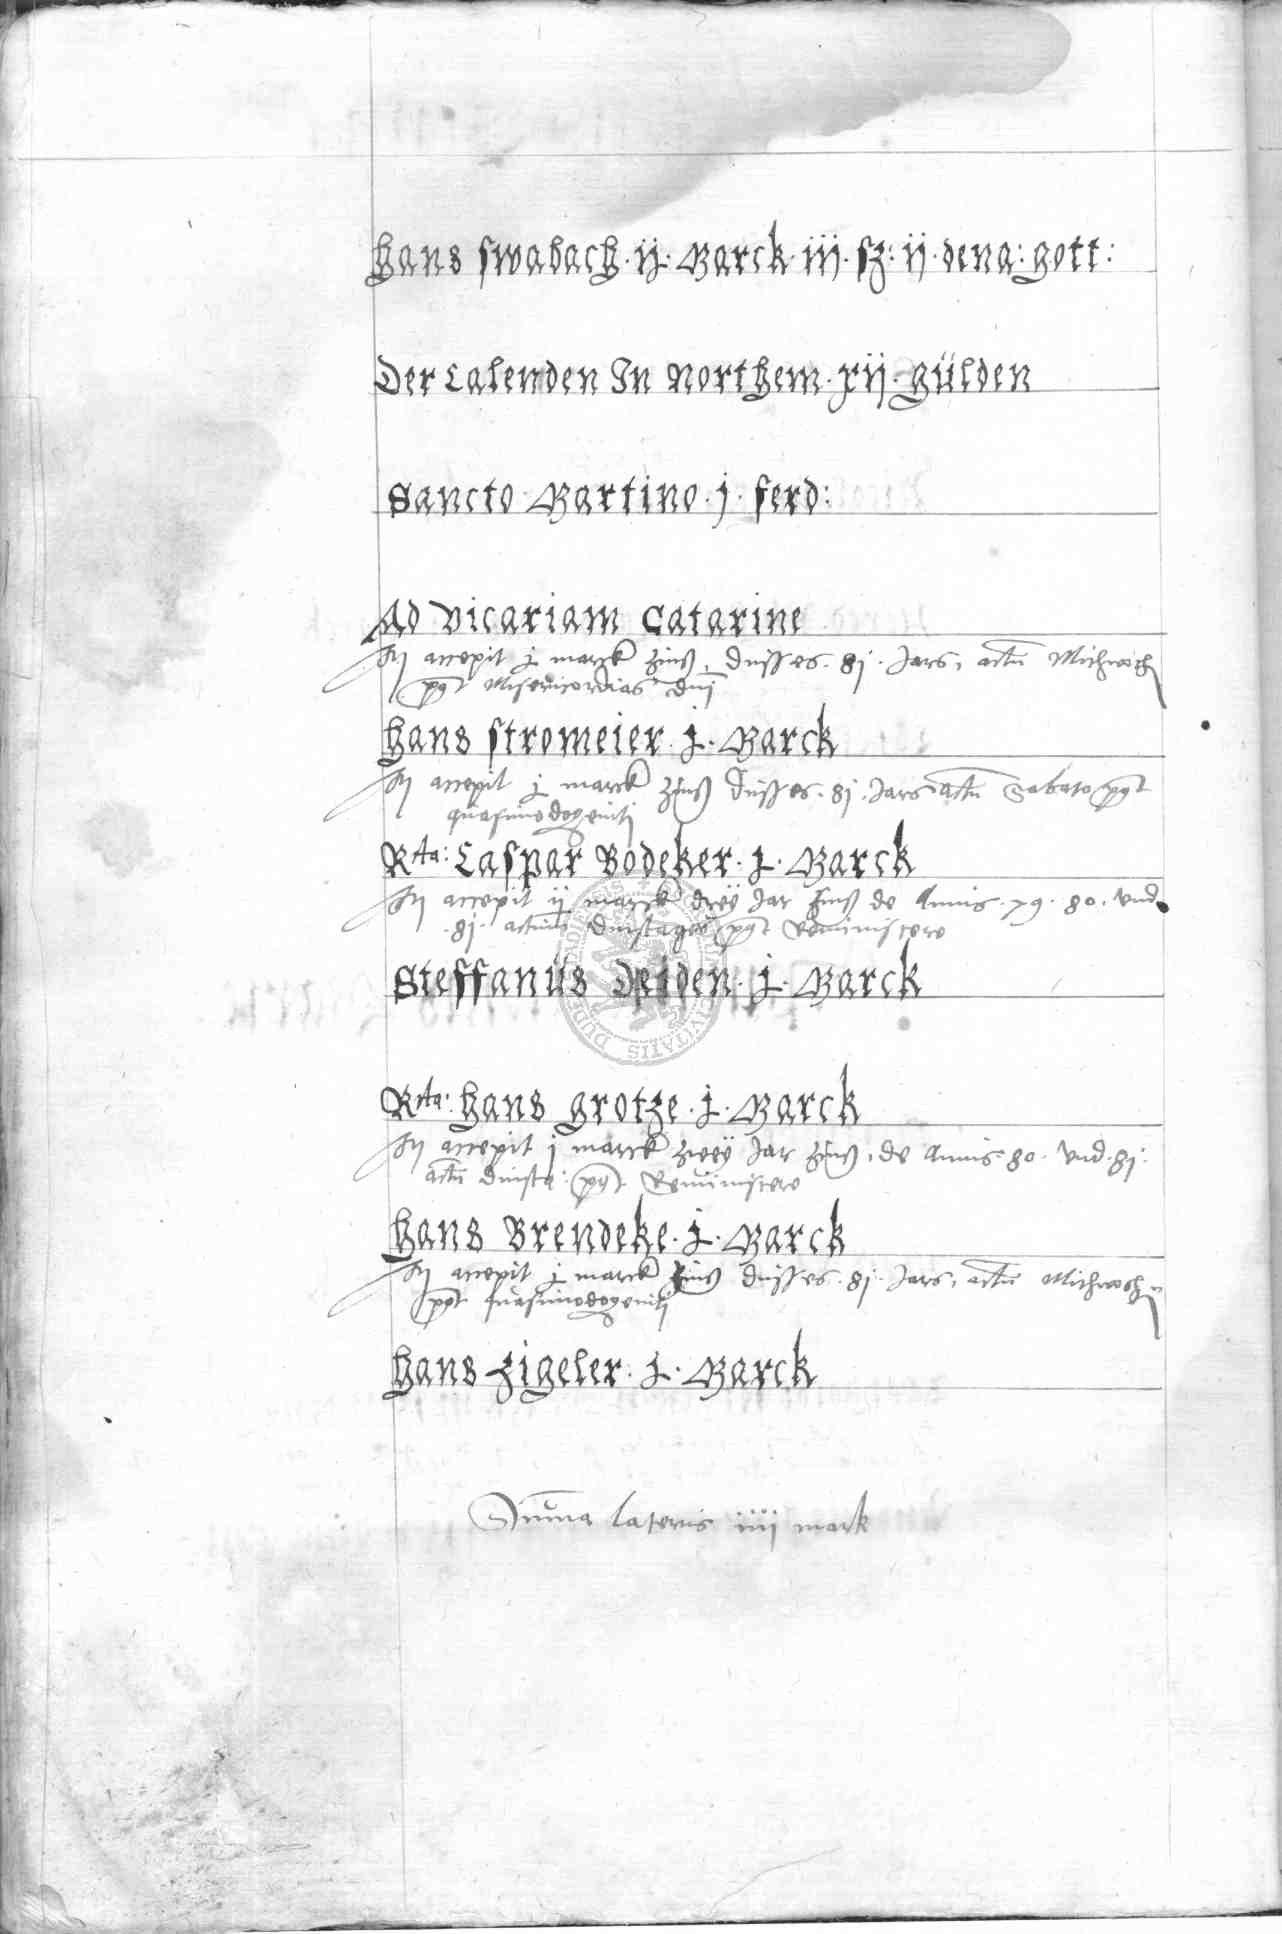 Hans Swabach · ij · Marck · iij · sz: ij · dena: gott:
Der Calenden In Northem · xij · gülden
Sancto Martino · j · ferd:
Ad Vicariam Catarine
accepit j marck zinß, dusses · 81 · Jars, actū Mithwoch
pꝰt Misericordias dni
Hans Stromeier · j · Marck
accepit j marck zinß dusses · 81 · Jars actū Sabato pꝰt
quasimodogeniti
Rta: Caspar Bodeker · j · Marck
accepit ij marck drey Jar zinß de Annis · 79 · 80 · vnd
· 81 · actum dinstages pꝰt Reminiscere
Steffanüs Deiden · j · Marck
Rta: Hans Grotze · j · Marck
accepit j marck zwey Jar zinß, de Annis · 80 · vnd · 81 ·
actū dinsta: pꝰt Reminiscere
Hans Brendeke · j · Marck
accepit j marck zinß dusses · 81 · Jars, actū Mithwoch
pꝰt quasimodogeniti
Hans Zigeler · j · Marck
Suma lateris iiij mark
CIVITATIS DUDE